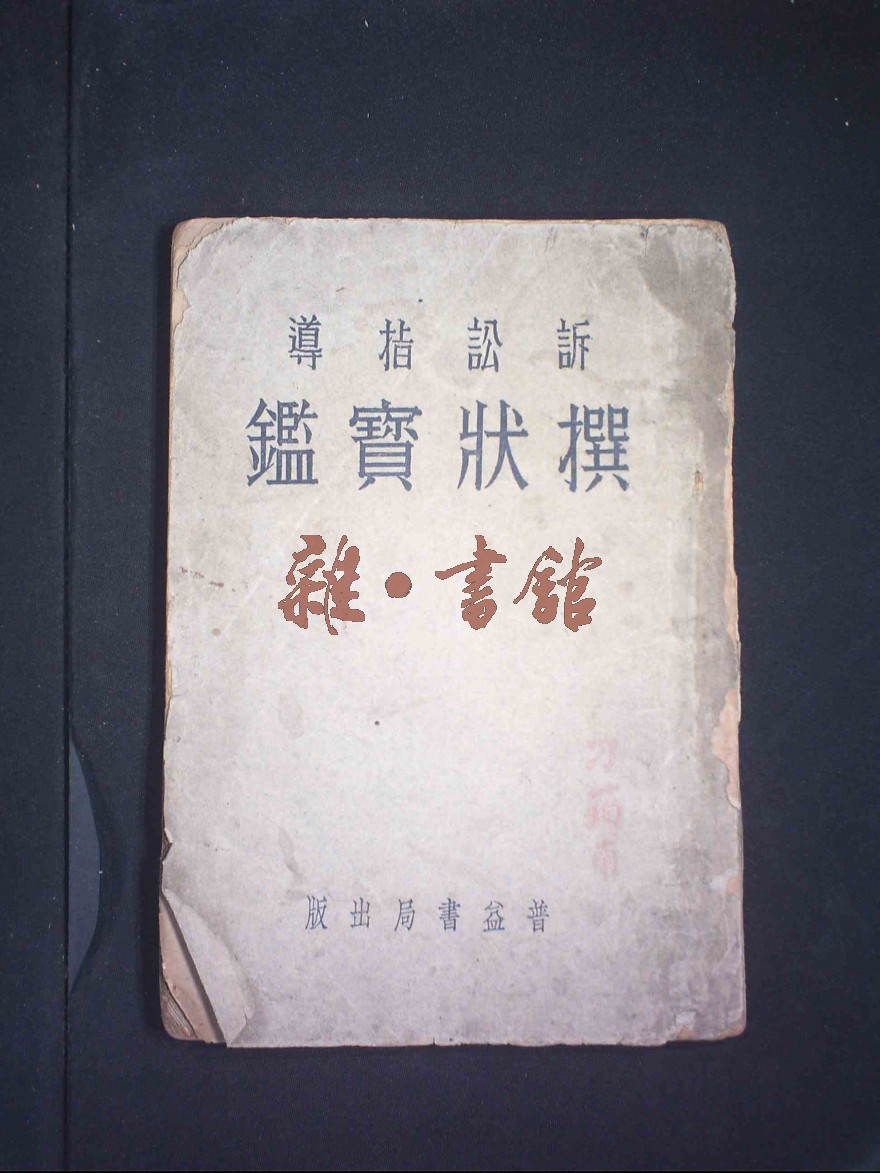 訴訟指導
撰狀寶鑑
雜·書館
普益書局出版